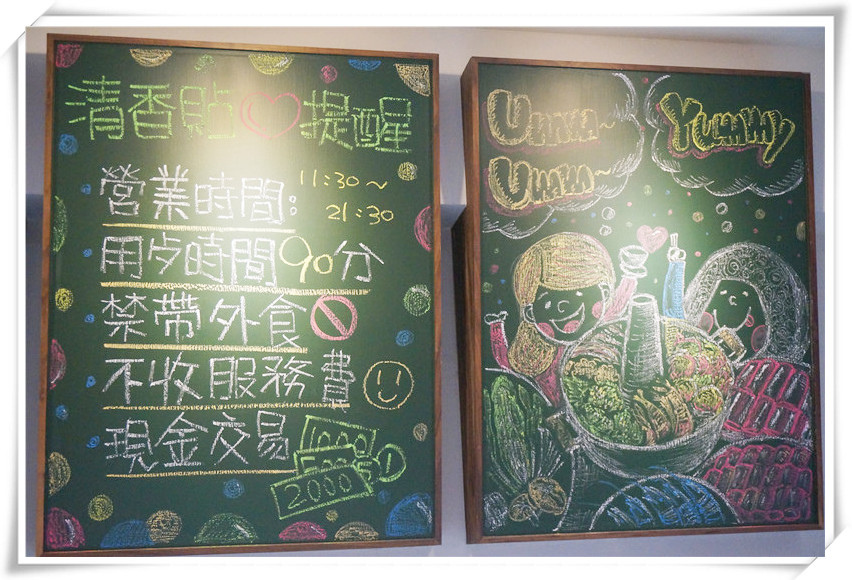 清香貼♡提醒
營業時間：11:30～
21:30
用歺時間90分
禁帶外食
不收服務費
現金交易
2000
Umm~
Umm~
Yummy